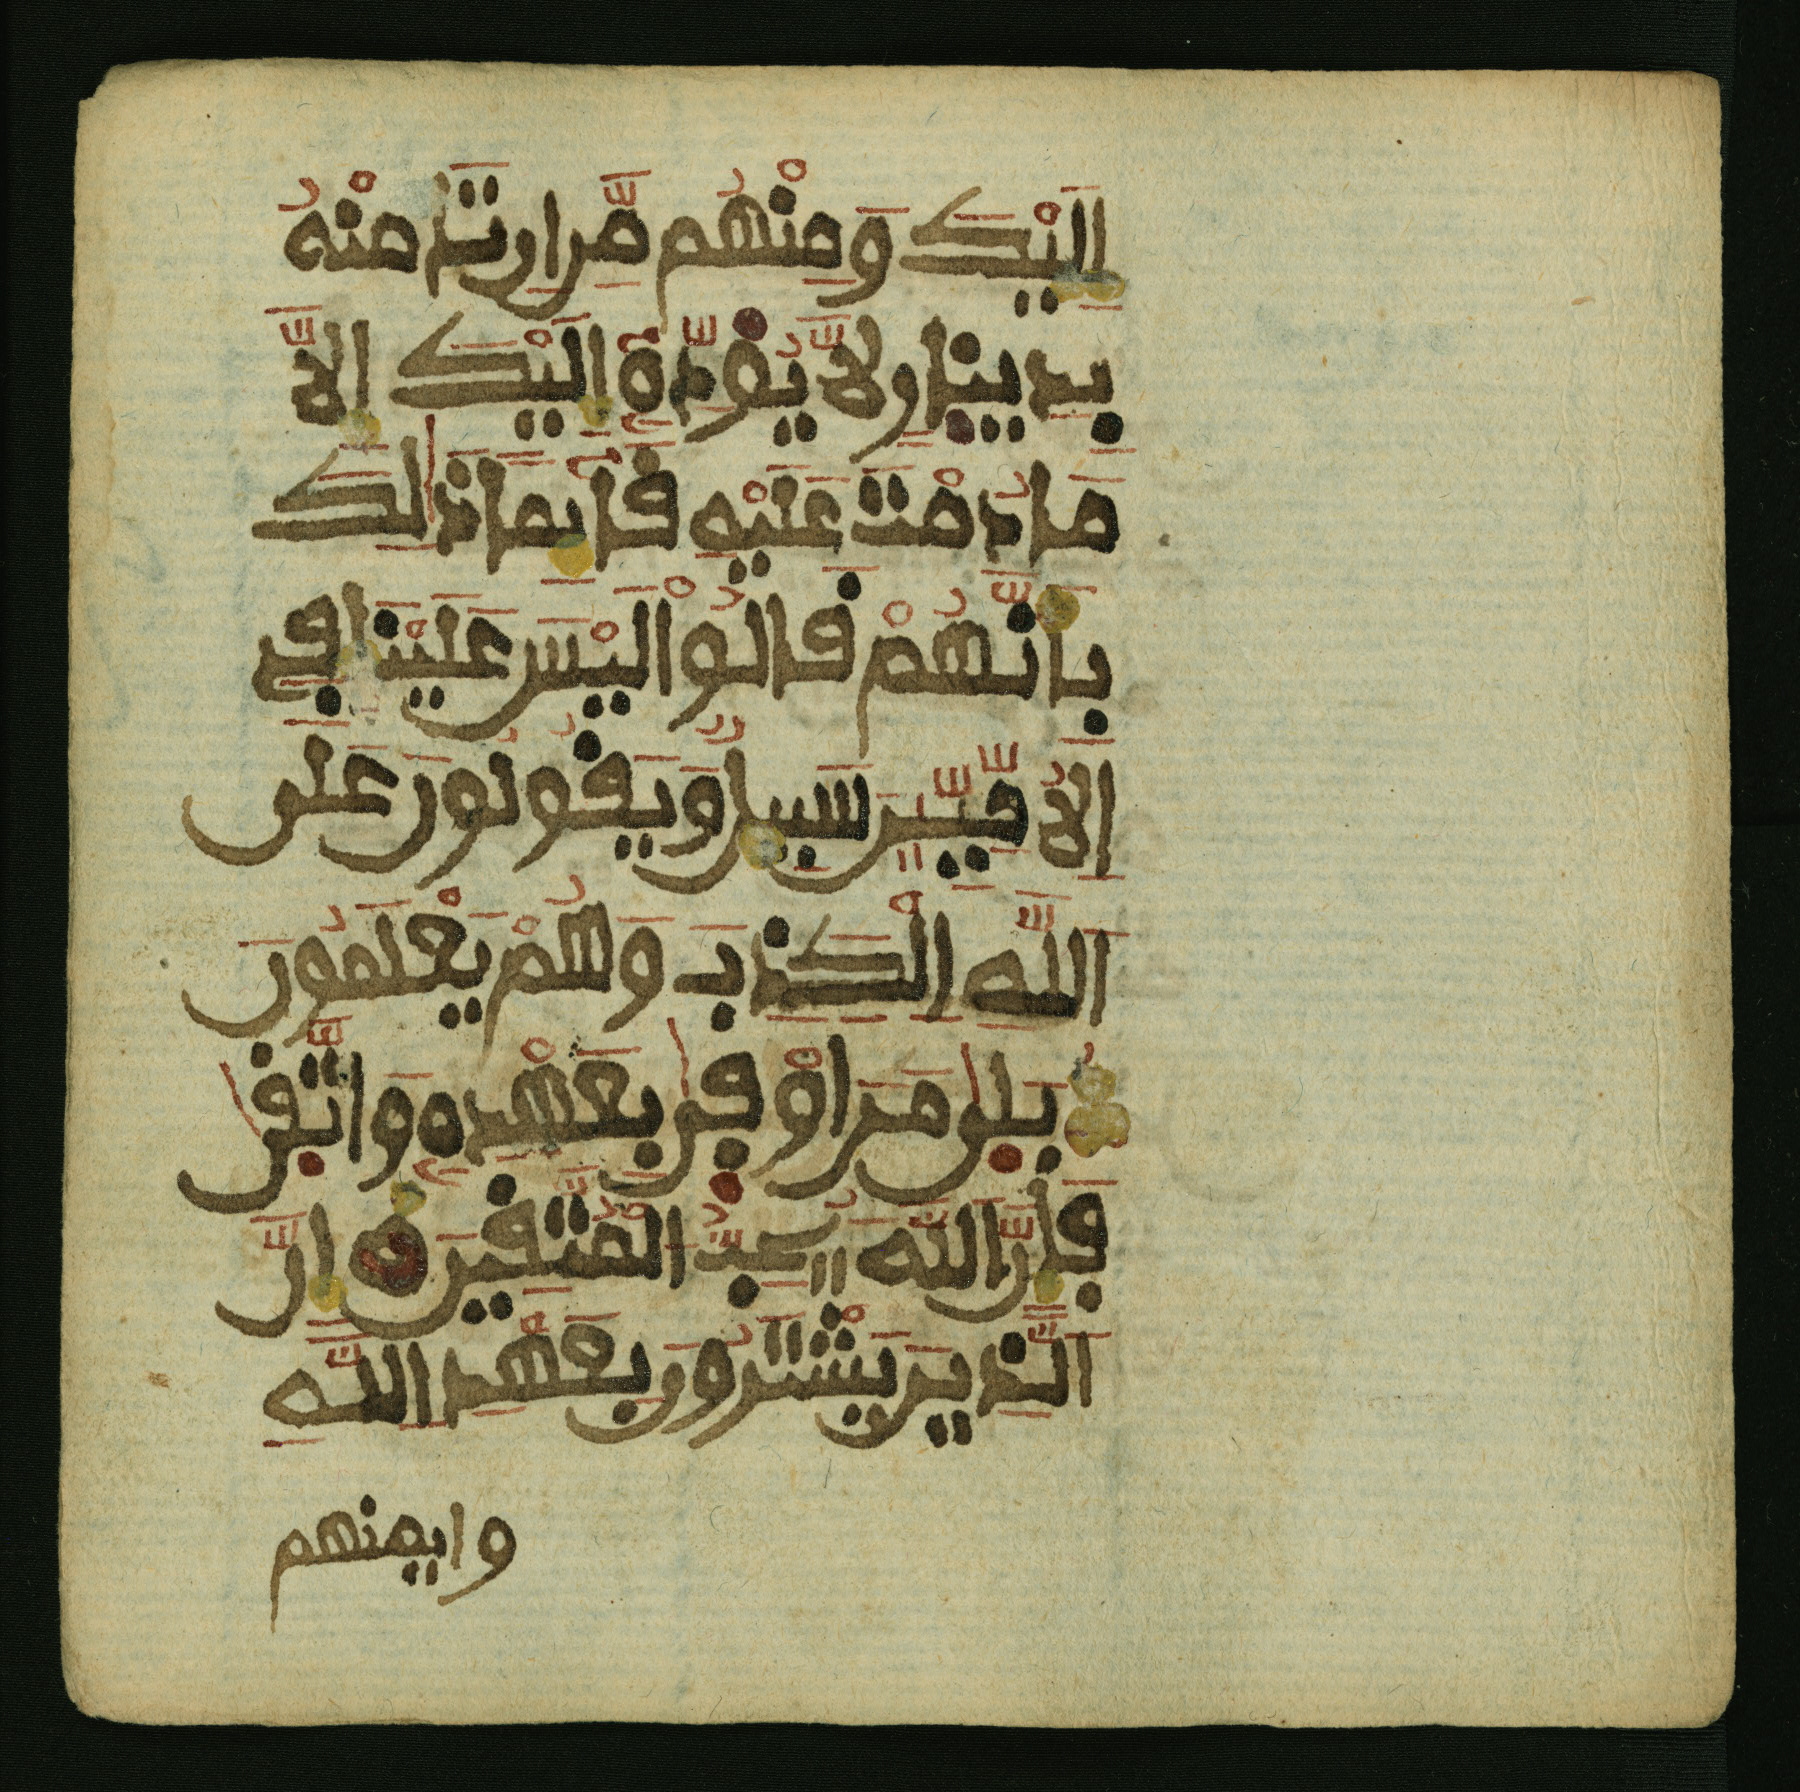 إِلَيْكَ وَمِنْهُم مَّنِ ان تَامَنْهُ
بِدِينَارٍ لَّا يُؤَدِّهِ إِلَيْكَ إِلَّا
مَا دُمْتَ عَلَيْهِ قَآئِمًا ذَٰلِكَ
بِأَنَّهُمْ قَالُوا لَيْسَ عَلَيْنَا فِي
الْأُمِّيِّينَ سَبِيلٌ وَيَقُولُونَ عَلَى
اللَّهِ الْكَذِبَ وَهُمْ يَعْلَمُونَ
بَلَىٰ مَنَ اوْفَىٰ بِعَهْدِهِ وَاتَّقَىٰ
فَإِنَّ اللَّهَ يُحِبُّ الْمُتَّقِينَ ه إِنَّ
الَّذِينَ يَشْتَرُونَ بِعَهْدِ اللَّهِ
وايمنهم